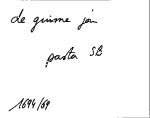 de guisme jon
pasta SB
1694/69